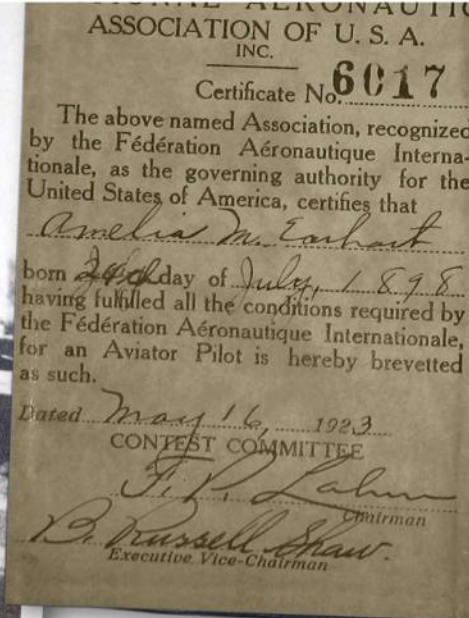 NATIONAL AERONAUTIC
ASSOCIATION OF U. S. A.
INC.
Certificate No. 6017
The above named Association, recognized
by the Fédération Aéronautique Interna-
tionale, as the governing authority for the
United States of America, certifies that
Amelia M. Earhart
born 24th day of July, 1898
having fulfilled all the conditions required by
the Fédération Aéronautique Internationale,
for an Aviator Pilot is hereby brevetted
as such.
Dated May 16, 1923
CONTEST COMMITTEE
F. P. Lahm
Chairman
B. Russell Shaw.
Executive Vice-Chairman